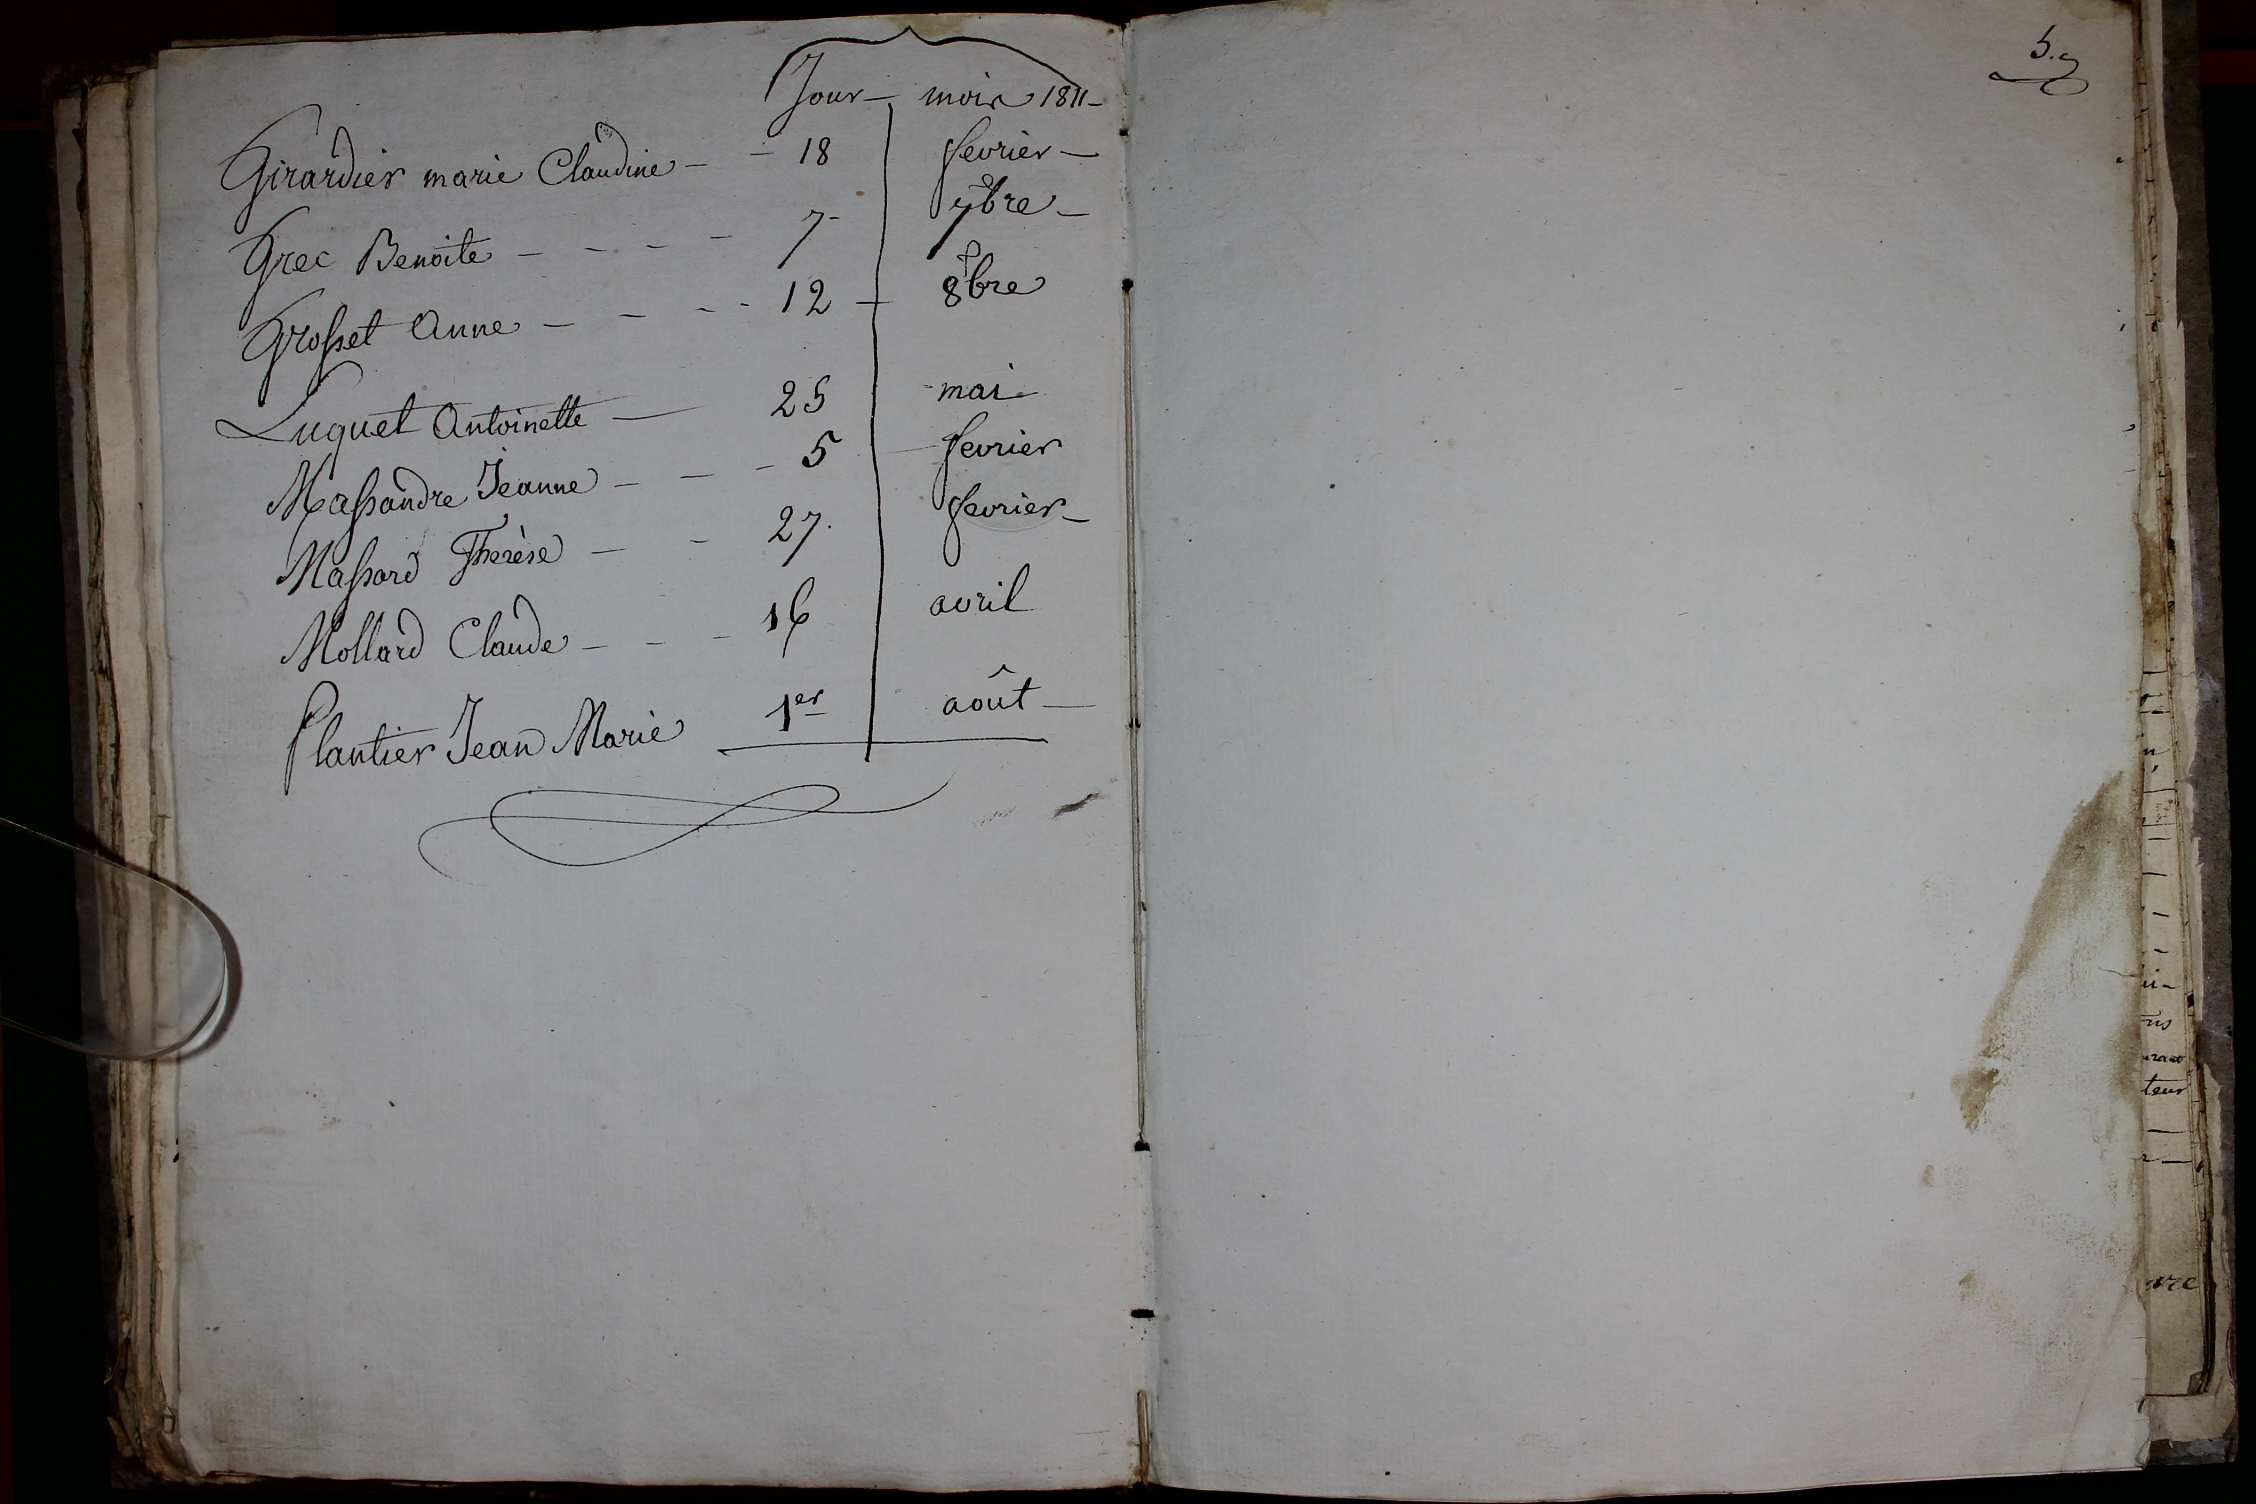 Jour - mois 1811 -
Girardier marie Claudine - - 18 fevrier -
Grec Benoite - - - - 7 - 7bre -
Grosset Anne - - - - 12 - 8bre
Luquet Antoinette - 25 mai
Massandre Jeanne - - - 5 fevrier
Massard Therèse - - 27. fevrier -
Mollard Claude - - - 16 avril
Plantier Jean Marie 1er août -
5.